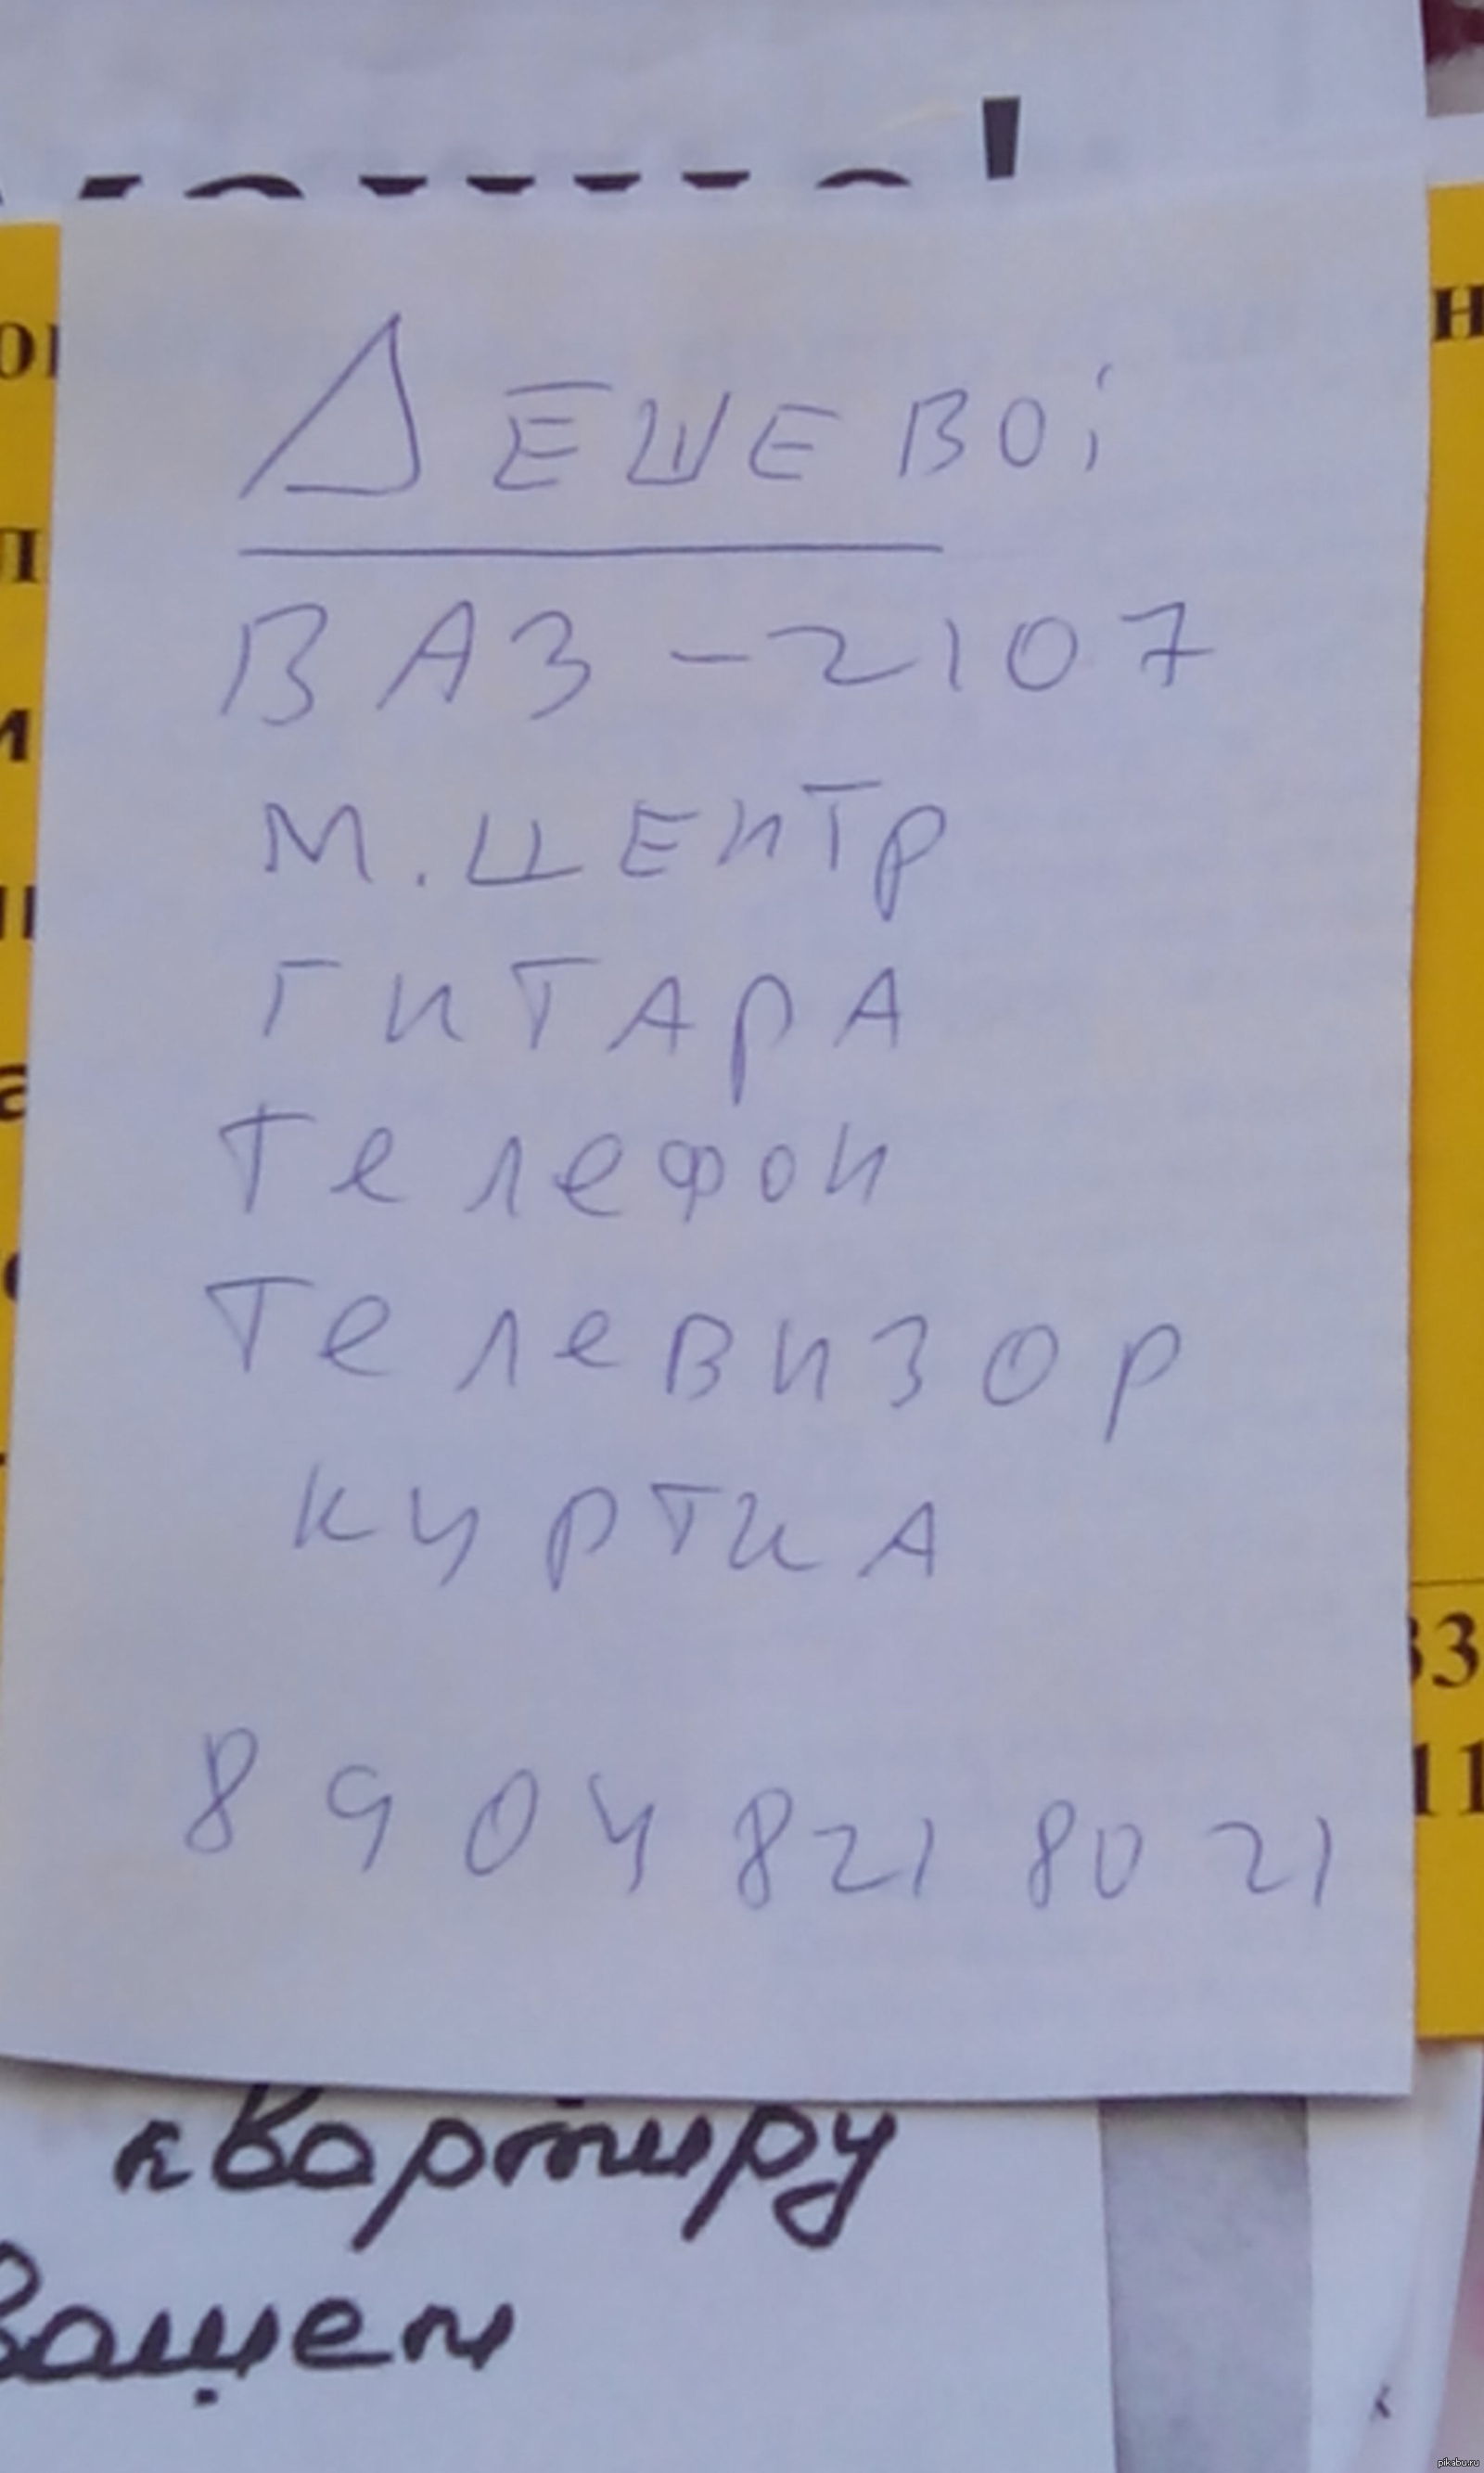 Дешево!
ВАЗ-2107
М.центр
гитара
Телефон
Телевизор
куртка
8 904 821 80 21
квартиру
вашем
pikabu.ru